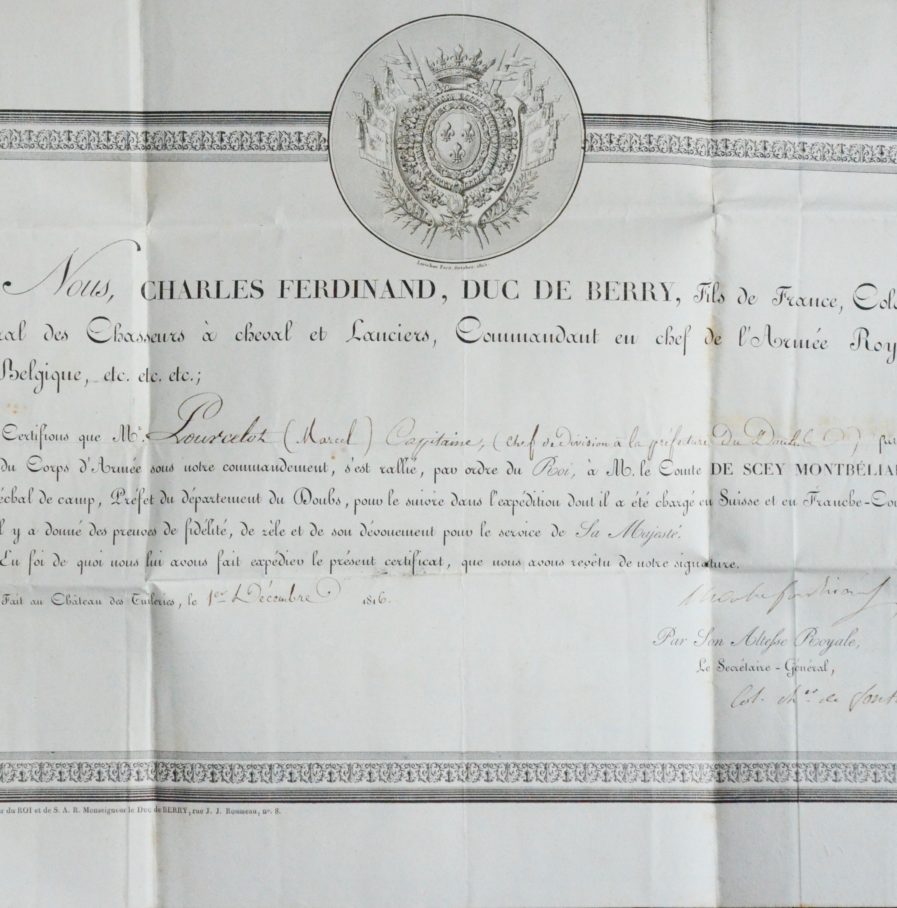 Nous, CHARLES FERDINAND, DUC DE BERRY, Fils de France, Col
ral des Chasseurs à cheval et Lanciers, Commandant en chef de l'Armée Roy
Belgique, etc. etc. etc.;
Certifions que Mr. Pourcelot (Marcel) Capitaine, (chef de division à la préfecture du Doubs)
du Corps d'Armée sous notre commandement, s'est rallié, par ordre du Roi, à M. le Comte DE SCEY MONTBÉLIA
échal de camp, Préfet du département du Doubs, pour le suivre dans l'expédition dont il a été chargé en Suisse et en Franche-Co
l y a donné des preuves de fidélité, de zèle et de son dévouement pour le service de Sa Majesté.
En foi de quoi nous lui avons fait expédier le présent certificat, que nous avons revêtu de notre signature.
Fait au Château des Tuileries, le 1er Décembre 1816.
Charles ferdinand
Par Son Altesse Royale,
Le Secrétaire-Général,
de
r du ROI et de S. A. R. Monseigneur le Duc de BERRY, rue J. J. Rousseau, no. 8.